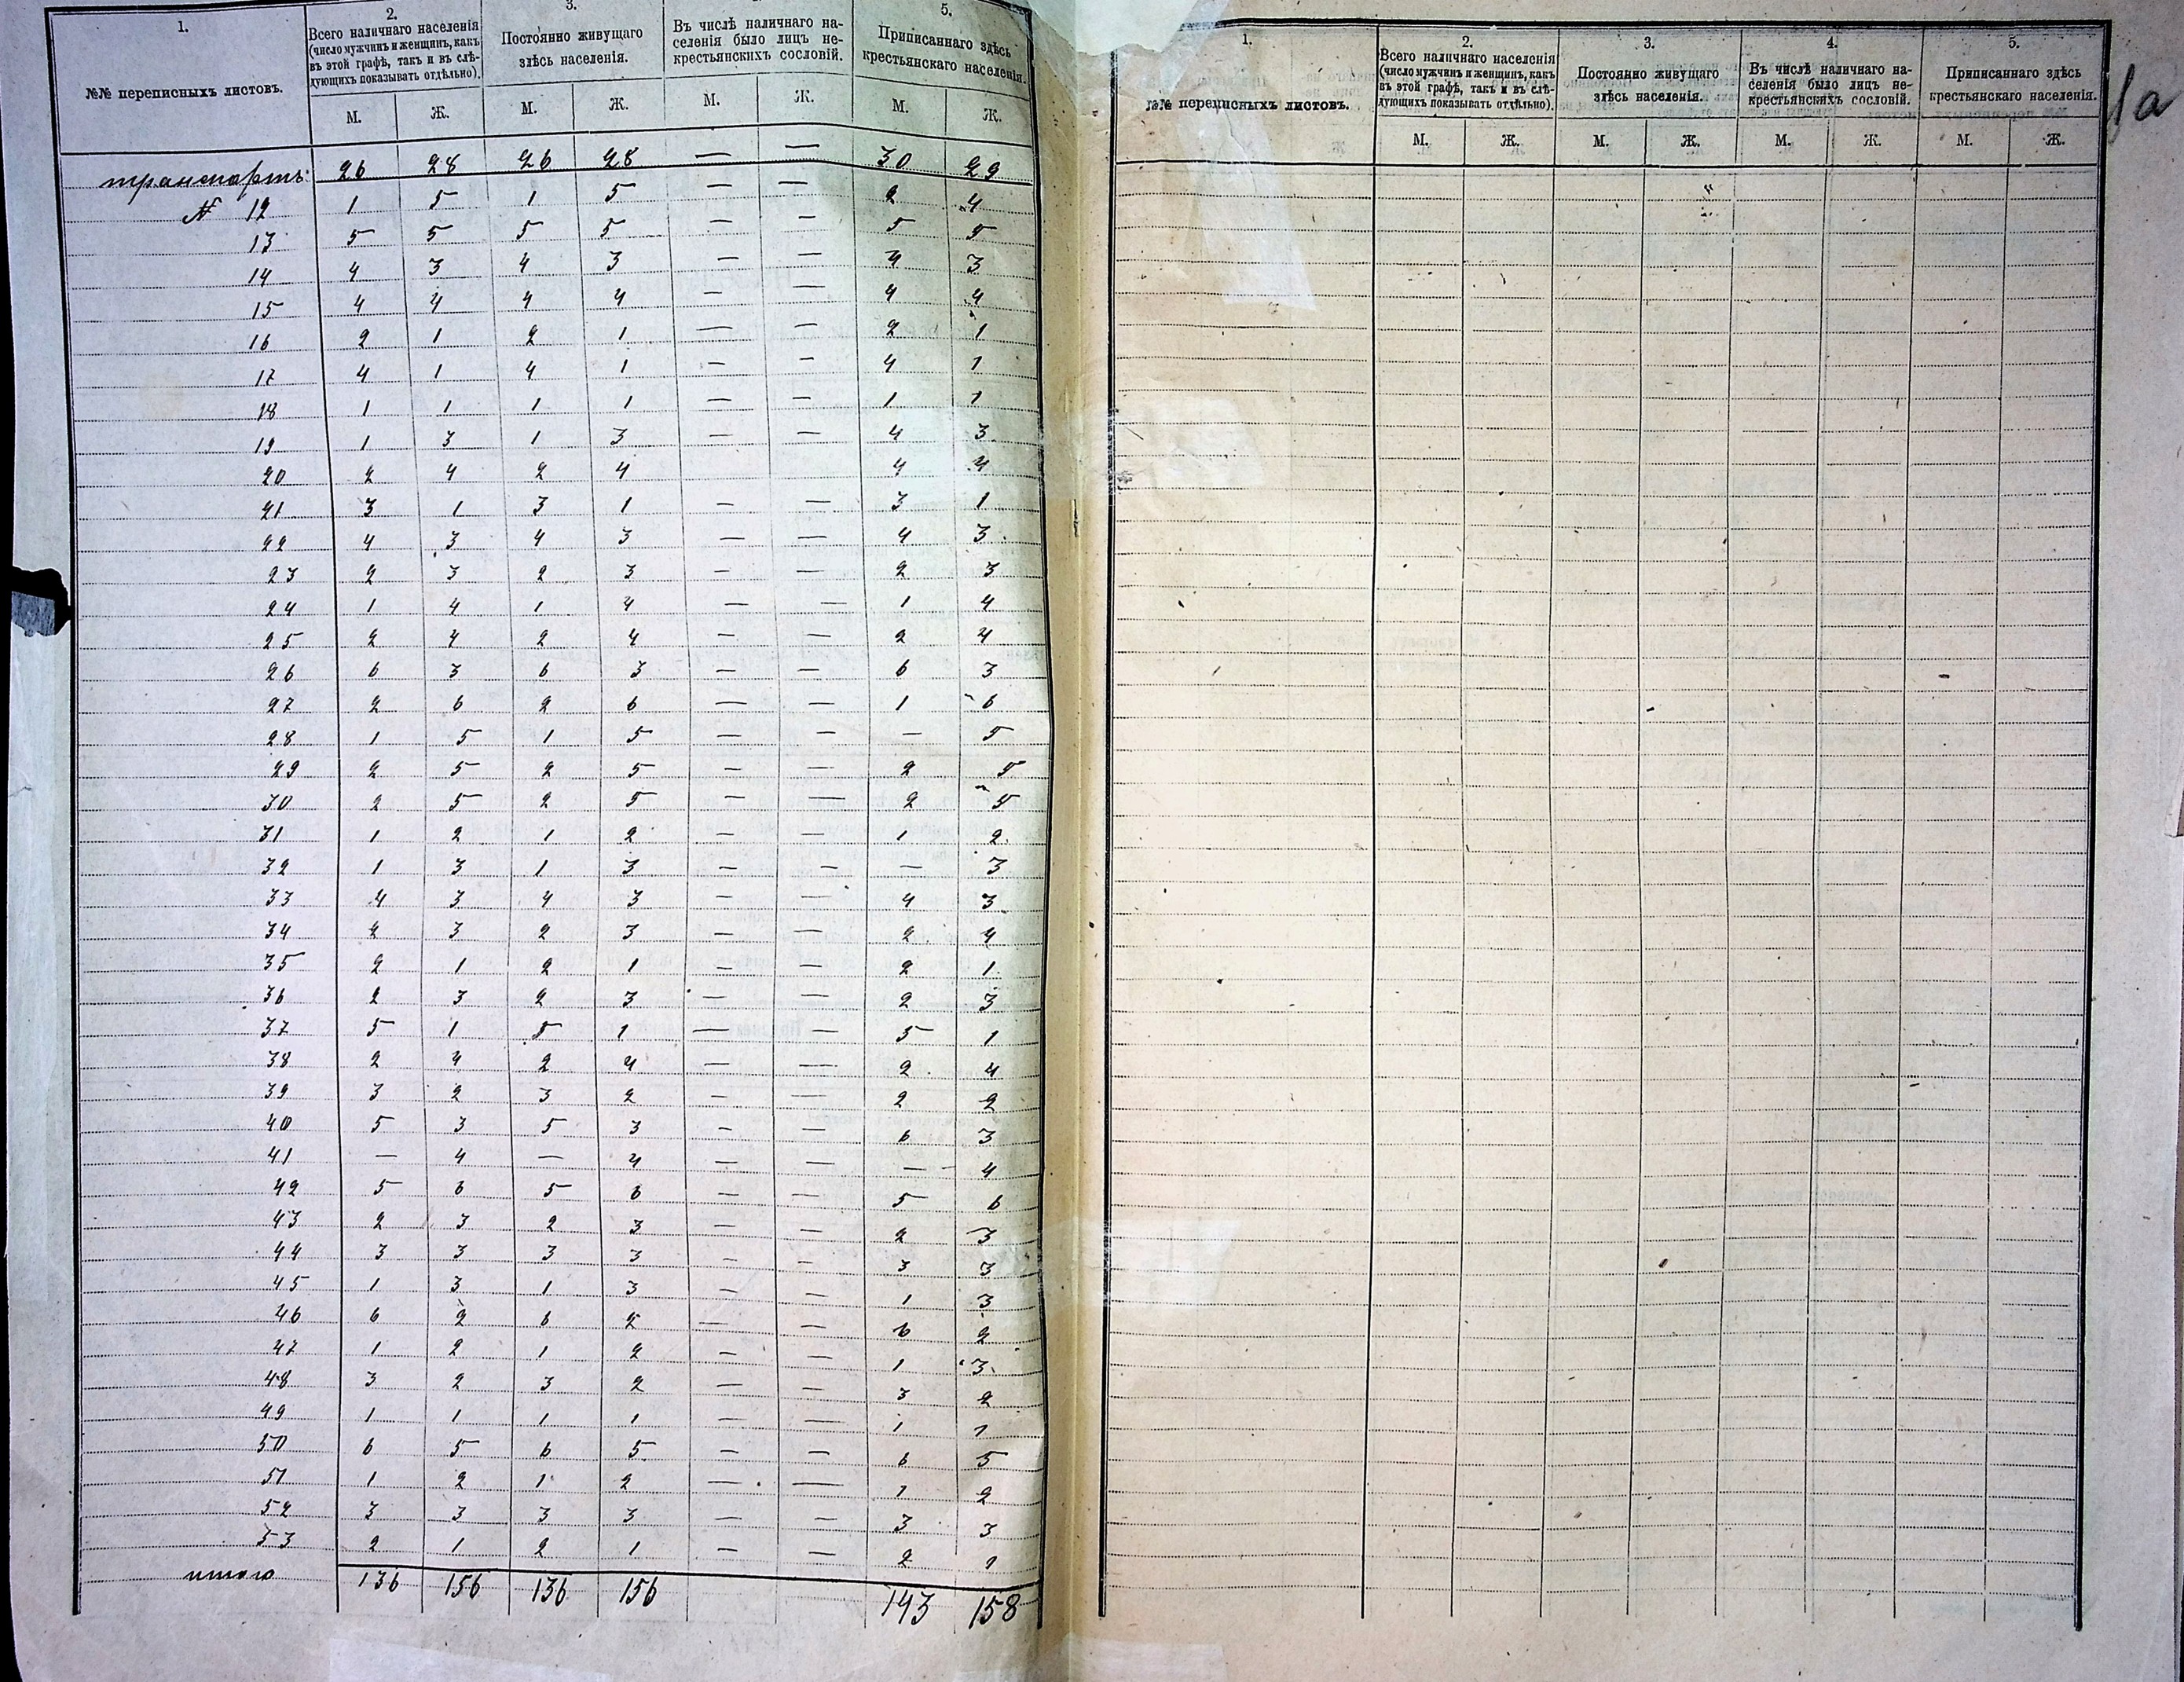 1. 2. 3. 5.
№№ переписныхъ листовъ.
Всего наличнаго населенія
(число мужчинъ и женщинъ, какъ
въ этой графѣ, такъ и въ слѣ-
дующихъ показывать отдѣльно).
Постоянно живущаго
здѣсь населенія.
Въ числѣ наличнаго на-
селенія было лицъ не-
крестьянскихъ сословій.
Приписаннаго здѣсь
крестьянскаго населенія.
М. Ж. М. Ж. М. Ж. М. Ж.
транспортъ: 26 28 26 28 — — 30 29
№ 12 1 5 1 5 — — 2 4
13 5 5 5 5 — — 5 5
14 4 3 4 3 — — 4 3
15 4 4 4 4 — — 4 4
16 2 1 2 1 — — 2 1
17 4 1 4 1 — — 4 1
18 1 1 1 1 — — 1 1
19 1 3 1 3 — — 4 3
20 2 4 2 4 4 4
21 3 1 3 1 — — 3 1
22 4 3 4 3 — — 4 3
23 2 3 2 3 — — 2 3
24 1 4 1 4 — — 1 4
25 2 4 2 4 — — 2 4
26 6 3 6 3 — — 6 3
27 2 6 2 6 — — 1 6
28 1 5 1 5 — — — 5
29 2 5 2 5 — — 2 5
30 2 5 2 5 — — 2 5
31 1 2 1 2 — — 1 2
32 1 3 1 3 — — — 3
33 4 3 4 3 — — 4 3
34 2 3 2 3 — — 2 4
35 2 1 2 1 — — 2 1
36 2 3 2 3 — — 2 3
37 5 1 5 1 — — 5 1
38 2 4 2 4 — — 2 4
39 3 2 3 2 — — 2 2
40 5 3 5 3 — — 6 3
41 — 4 — 4 — — — 4
42 5 6 5 6 — — 5 6
43 2 3 2 3 — — 2 3
44 3 3 3 3 — — 3 3
45 1 3 1 3 — — 1 3
46 6 2 6 2 — — 6 2
47 1 2 1 2 — — 1 3
48 3 2 3 2 — — 3 2
49 1 1 1 1 — — 1 1
50 6 5 6 5 — — 6 5
51 1 2 1 2 — — 1 2
52 3 3 3 3 — — 3 3
53 2 1 2 1 — — 2 1
итого 136 156 136 156 143 158
1. 2. 3. 4. 5.
№№ переписныхъ листовъ.
Всего наличнаго населенія
(число мужчинъ и женщинъ, какъ
въ этой графѣ, такъ и въ слѣ-
дующихъ показывать отдѣльно).
Постоянно живущаго
здѣсь населенія.
Въ числѣ наличнаго на-
селенія было лицъ не-
крестьянскихъ сословій.
Приписаннаго здѣсь
крестьянскаго населенія.
М. Ж. М. Ж. М. Ж. М. Ж.
1а